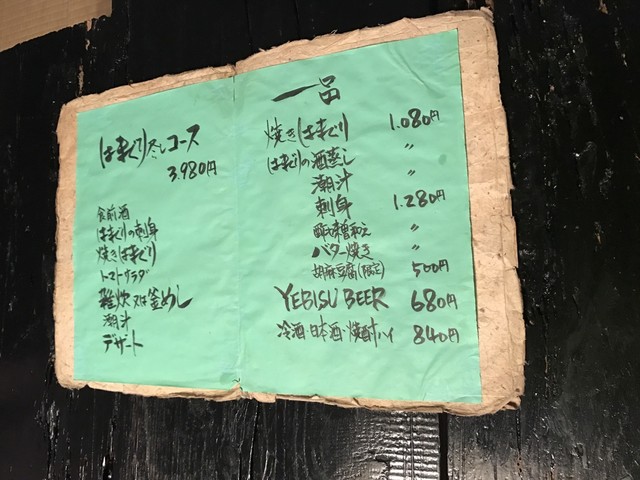 はまぐり尽しコース
3.980円
食前酒
はまぐりの刺身
焼きはまぐり
トマトサラダ
雑炊又は釜めし
潮汁
デザート
一品
焼きはまぐり 1.080円
はまぐりの酒蒸し 〃
潮汁 〃
刺身 1.280円
酢味噌和え 〃
バター焼き 〃
胡麻豆腐(限定) 500円
YEBISU BEER 680円
冷酒・日本酒・焼酎ハイ 840円